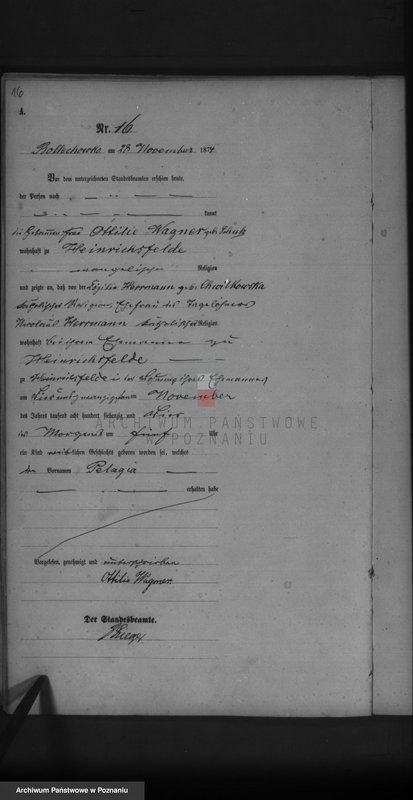 16
A.
Nr. 16
am 28 November 1874
Vor dem unterzeichneten Standesbeamten erschien heute,
der Person nach
kannt
die Hebamme Frau Ottilie Wagner geb.
wohnhaft zu Heinrichsfelde
evangelischer Religion
und zeigte an, daß von der Herrmann geb.
katholischer Religion, Ehefrau des Tagelöhners
Herrmann katholischer Religion
wohnhaft bei ihrem Ehemanne zu
Heinrichsfelde
zu Heinrichsfelde in der Wohnung ihres Ehemannes
am November
des Jahres tausend acht hundert siebenzig und vier
des Morgens um fünf Uhr
ein Kind weiblichen Geschlechts geboren worden sei, welches
den Vornamen Pelagia
erhalten habe
Vorgelesen, genehmigt und unterschrieben
Ottilie Wagner
Der Standesbeamte.
ARCHIWUM PAŃSTWOWE
W POZNANIU
Archiwum Państwowe w Poznaniu